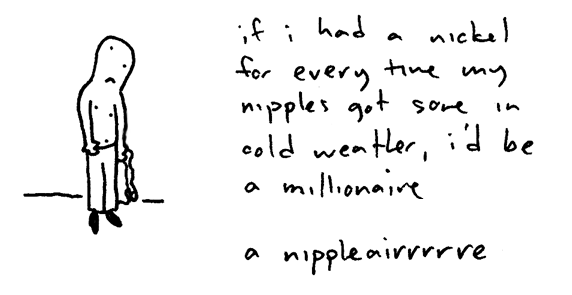 if i had a nickel
for every time my
nipples got sore in
cold weather, i'd be
a millionaire
a nippleairrrrre